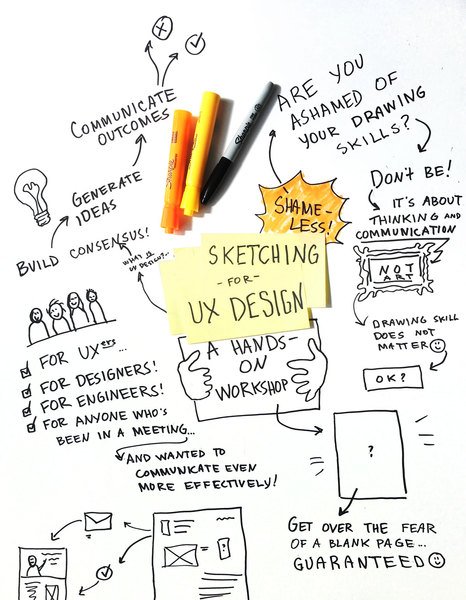 COMMUNICATE
OUTCOMES
GENERATE
IDEAS
BUILD CONSENSUS!
WHAT IS
UX DESIGN?...
ARE YOU
ASHAMED OF
YOUR DRAWING
SKILLS?
DON'T BE!
IT'S ABOUT
THINKING AND
COMMUNICATION
NOT
ART
DRAWING SKILL
DOES NOT
MATTER
OK?
Sharpie
SHAME-
LESS!
SKETCHING
-FOR-
UX DESIGN
A HANDS-
ON
WORKSHOP
FOR UXers...
FOR DESIGNERS!
FOR ENGINEERS!
FOR ANYONE WHO'S
BEEN IN A MEETING...
AND WANTED TO
COMMUNICATE EVEN
MORE EFFECTIVELY!
?
GET OVER THE FEAR
OF A BLANK PAGE...
GUARANTEED
?